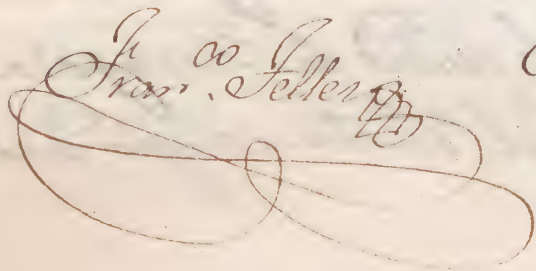 Fran.co Feller